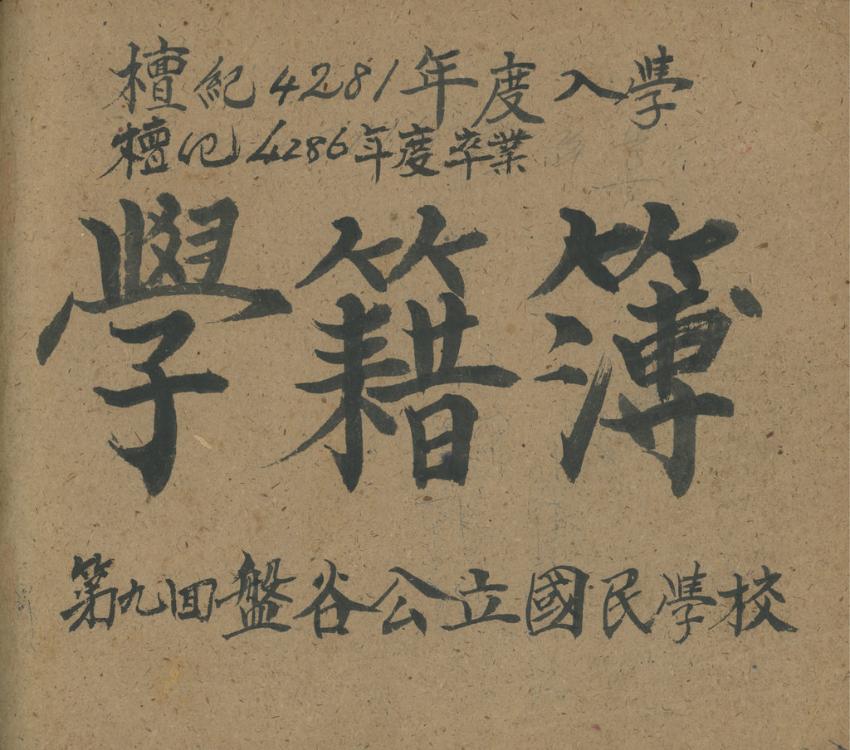 檀紀4281年度入學
檀紀4286年度卒業
學籍簿
第九回盤谷公立國民學校